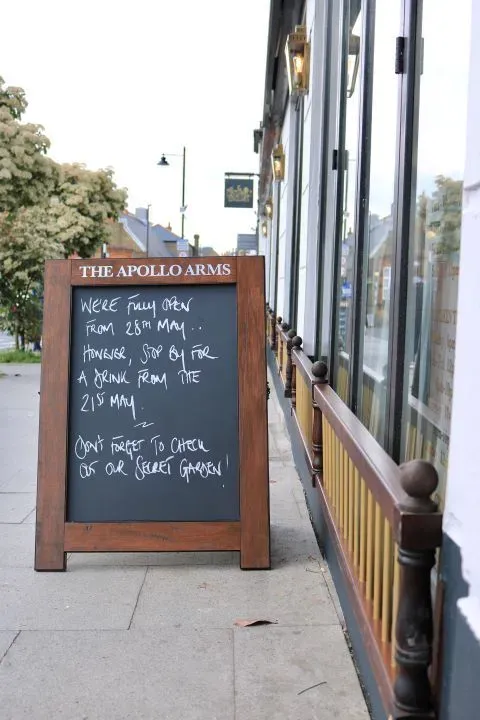 THE APOLLO ARMS
WE'RE FULLY OPEN
FROM 28TH MAY..
HOWEVER, STOP BY FOR
A DRINK FROM THE
21ST MAY.
DON'T FORGET TO CHECK
OUT OUR SECRET GARDEN!